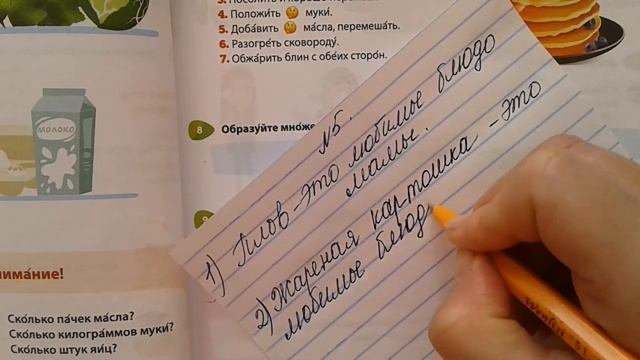 4. Положи́ть муки́.
5. Доба́вить ма́сла, перемеша́ть.
6. Разогре́ть сковороду́.
7. Обжа́рить блин с обе́их сторо́н.
8 Образу́йте
МОЛОКО
9
Ско́лько па́чек ма́сла?
Ско́лько килогра́ммов муки́?
Ско́лько штук яи́ц?
№5.
1) Плов - это любимое блюдо
мамы.
2) Жареная картошка - это
любимое блюд